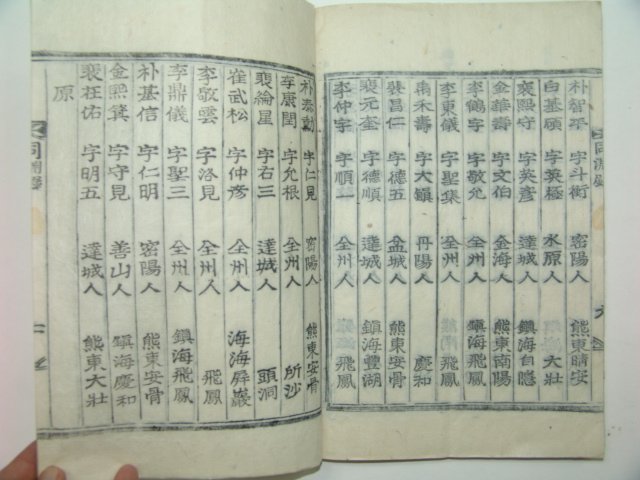 朴智平 字斗衡 密陽人 熊東晴安
白基碩 字英極 水原人 大壯
裵熙守 字英彥 達城人 鎮海自隱
金華壽 字文伯 金海人 熊東南陽
李鶴宇 字敬允 全州人 鎮海飛鳳
李東儀 字聖集 全州人
禹禾壽 字大鎮 丹陽人 慶和
裵昌仁 字德五 盆城人 熊東安骨
裵元奎 字德順 達城人 鎮海豐湖
李仲宇 字順一 全州人 飛鳳
同淵錄
朴 勳 字仁見 密陽人 熊東安骨
李康閏 字允根 全州人 所沙
裵綸星 字右三 達城人 頭洞
崔武松 字仲彥 全州人 海海屛巖
李敬雲 字洛見 全州人 飛鳳
李鼎儀 字聖三 全州人 鎮海飛鳳
朴基信 字仁明 密陽人 熊東安骨
金熙箕 字守見 善山人 鎮海慶和
裵枉佑 字明五 達城人 熊東大壯
原
同淵錄